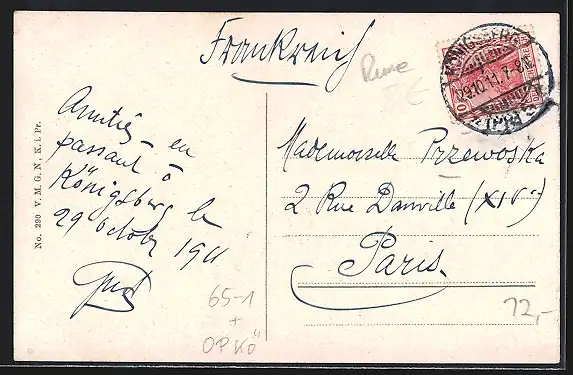 Frankreich
KÖNIGSBERG
29.10.11. 7-8N
(PR)
10
Amitiés en
passant à
Königsberg le
29 October 1911
Mademoiselle Przewoska
2 Rue Danville (XIVe)
Paris.
No. 290 V. M. G. N., K. i. Pr.
65-1
+
OPKÖ
12,-